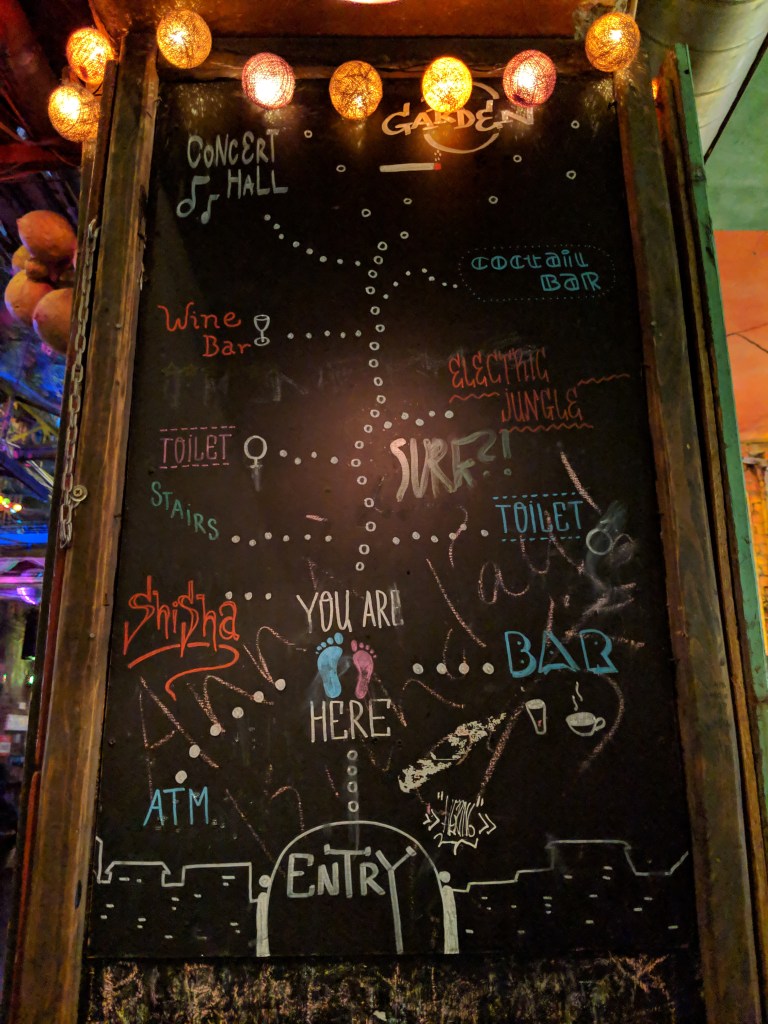 GARDEN
CONCERT
HALL
COCTAIL
BAR
Wine
Bar
ELECTRIC
JUNGLE
TOILET
SURF?!
STAIRS
TOILET
ShiSha
YOU ARE
HERE
BAR
ATM
ENTRY